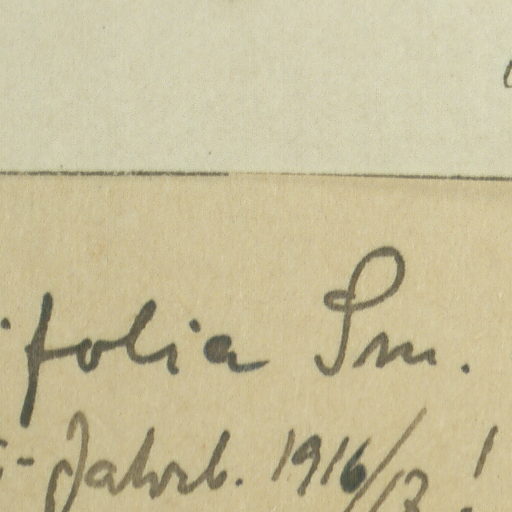 ifolia Sm.
-Jahrb. 1916/17.